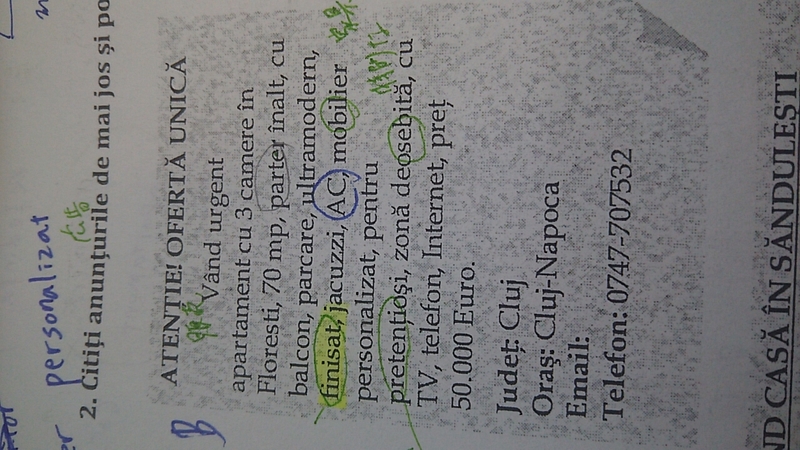 personalizat
2. Citiți anunțurile de mai jos și po
B
ATENȚIE! OFERTĂ UNICĂ
Vând urgent
apartament cu 3 camere în
Floresti, 70 mp, parter înalt, cu
balcon, parcare, ultramodern,
finisat, jacuzzi, AC, mobilier
personalizat, pentru
pretențioși, zonă deosebită, cu
TV, telefon, Internet, preț
50.000 Euro.
Județ: Cluj
Oraș: Cluj-Napoca
Email:
Telefon: 0747-707532
ND CASĂ ÎN SĂNDULEȘTI